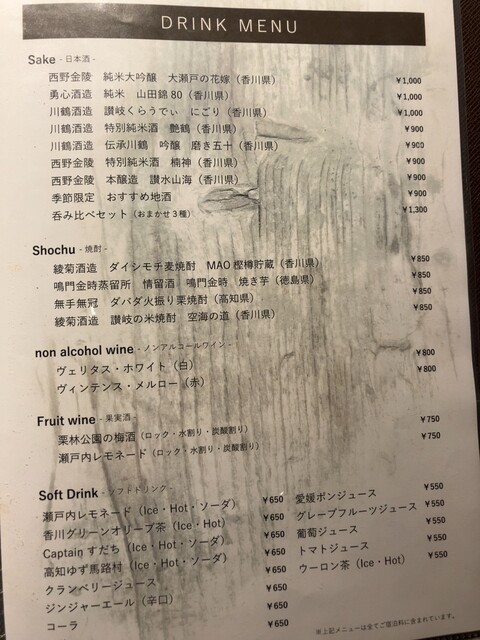 DRINK MENU
Sake - 日本酒 -
西野金陵 純米大吟醸 大瀬戸の花嫁（香川県） ¥1,000
勇心酒造 純米 山田錦80（香川県） ¥1,000
川鶴酒造 讃岐くらうでぃ にごり（香川県） ¥1,000
川鶴酒造 特別純米酒 艶鶴（香川県） ¥900
川鶴酒造 伝承川鶴 吟醸 磨き五十（香川県） ¥900
西野金陵 特別純米酒 楠神（香川県） ¥900
西野金陵 本醸造 讃水山海（香川県） ¥900
季節限定 おすすめ地酒 ¥900
呑み比べセット（おまかせ３種） ¥1,300
Shochu - 焼酎 -
綾菊酒造 ダイシモチ麦焼酎 MAO樫樽貯蔵（香川県） ¥850
鳴門金時蒸留所 情留酒 鳴門金時 焼き芋（徳島県） ¥850
無手無冠 ダバダ火振り栗焼酎（高知県） ¥850
綾菊酒造 讃岐の米焼酎 空海の道（香川県） ¥850
non alcohol wine - ノンアルコールワイン -
ヴェリタス・ホワイト（白） ¥800
ヴィンテンス・メルロー（赤） ¥800
Fruit wine - 果実酒 -
栗林公園の梅酒（ロック・水割り・炭酸割り） ¥750
瀬戸内レモネード（ロック・水割り・炭酸割り） ¥750
Soft Drink - ソフトドリンク -
瀬戸内レモネード（Ice・Hot・ソーダ） ¥650
香川グリーンオリーブ茶（Ice・Hot） ¥650
Captain すだち（Ice・Hot・ソーダ） ¥650
高知ゆず馬路村（Ice・Hot・ソーダ） ¥650
クランベリージュース ¥650
ジンジャーエール（辛口） ¥650
コーラ ¥650
愛媛ポンジュース ¥550
グレープフルーツジュース ¥550
葡萄ジュース ¥550
トマトジュース ¥550
ウーロン茶（Ice・Hot） ¥550
※上記メニューは全てご宿泊料に含まれています。